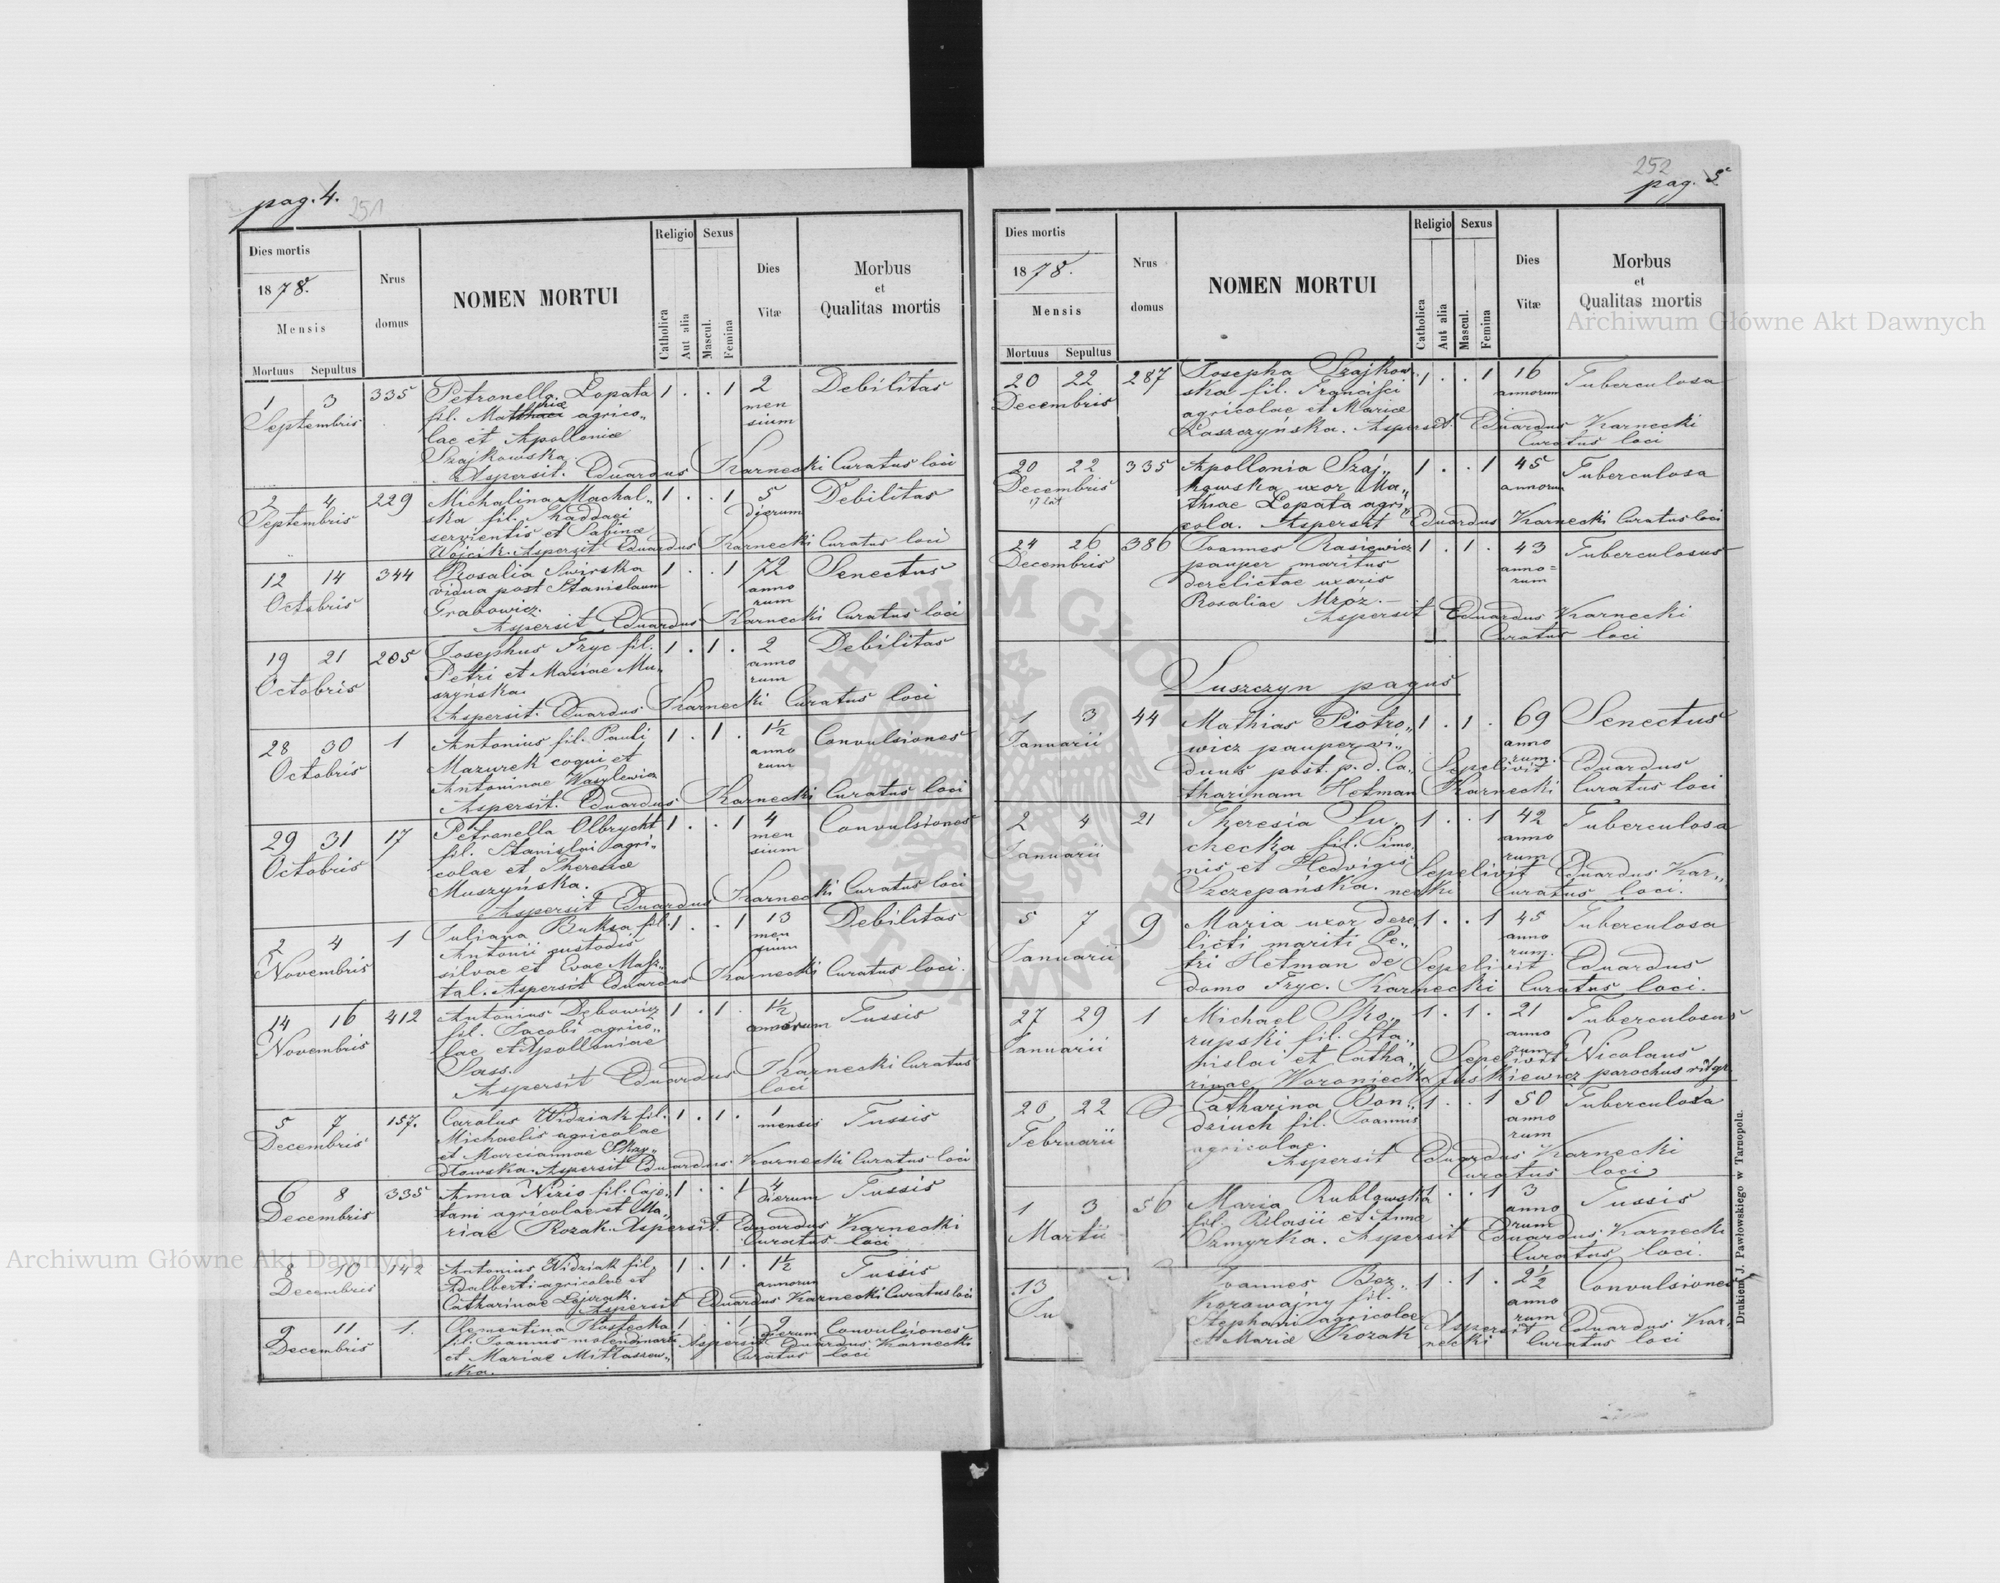 pag. 4.
251
Dies mortis
1878.
Mensis
Mortuus Sepultus
Nrus domus
NOMEN MORTUI
Religio
Catholica
Aut alia
Sexus
Mascul.
Femina
Dies Vitæ
Morbus et Qualitas mortis
1 3 335 Petronella Łopata 1 . . 1 2 Debilitas
Septembris fil. Mathiae agrico„ men
lae et Apolloniae sium
Szajkowska.
Aspersit. Eduardus Karnecki Curatus loci
2 4 229 Michalina Machal„ 1 . . 1 5 Debilitas
Septembris ska fil. Thaddaei dierum
servientis et Sabinae
Wójcik. Aspersit Eduardus Karnecki Curatus loci
12 14 344 Rosalia Swirska 1 . . 1 72 Senectus
Octobris vidua post Stanislaum anno
Grabowicz. rum
Aspersit Eduardus Karnecki Curatus loci
19 21 205 Josephus Fryc fil. 1 . 1 . 2 Debilitas
Octobris Petri et Mariae Mu„ anno
szyńska. rum
Aspersit. Eduardus Karnecki Curatus loci
28 30 1 Antonius fil. Pauli 1 . 1 . 1½ Convulsiones
Octobris Mazurek coqui et anno
Antoninae Wasylewicz rum
Aspersit. Eduardus Karnecki Curatus loci
29 31 17 Petronella Olbrycht 1 . . 1 4 Convulsiones
Octobris fil. Stanislai agri„ men
colae et Theresiae sium
Muszyńska.
Aspersit Eduardus Karnecki Curatus loci
2 4 1 Juliana Buksa fil. 1 . . 1 13 Debilitas
Novembris Antonii custodis men
silvae et Evae Masz„ sium
tal. Aspersit Eduardus Karnecki Curatus loci.
14 16 412 Antonius Dębowicz 1 . 1 . 1½ Tussis
Novembris fil. Jacobi agrico„ annorum
lae et Apolloniae
Sass.
Aspersit Eduardus Karnecki Curatus
loci
5 7 157. Carolus Widziak fil. 1 . 1 . 1 Tussis
Decembris Michaelis agricolae mensis
et Marciannae Skay„
dłowska. Aspersit Eduardus Karnecki Curatus loci
6 8 335 Anna Nizio fil. Caje„ 1 . . 1 4 Tussis
Decembris tani agricolae et Ma„ dierum
riae Kozak. Aspersit. Eduardus Karnecki
Curatus loci
8 10 142 Antonius Widziak fil. 1 . 1 . 1½ Tussis
Decembris Adalberti agricolae et annorum
Catharinae
Aspersit Eduardus Karnecki Curatus loci
9 11 1. Clementina 1 . . 1 9 Convulsiones
Decembris fil. Joannis molendinarii Aspersit dierum Eduardus Karnecki
et Mariae Mitlaszew„ Curatus loci
ska.
252
pag. 5.
Dies mortis
1878.
Mensis
Mortuus Sepultus
Nrus domus
NOMEN MORTUI
Religio
Catholica
Aut alia
Sexus
Mascul.
Femina
Dies Vitæ
Morbus et Qualitas mortis
20 22 287 Josepha Szajkow„ 1 . . 1 16 Tuberculosa
Decembris ska fil. Francisci annorum
agricolae et Mariae
Łaszczyńska. Aspersit. Eduardus Karnecki
Curatus loci
20 22 335 Apollonia Szaj„ 1 . . 1 45 Tuberculosa
Decembris kowska uxor Ma„ annorum
17 lat thiae Łopata agri„
cola. Aspersit Eduardus Karnecki Curatus loci
24 26 386 Joannes Rasiewicz 1 . 1 . 43 Tuberculosus
Decembris pauper maritus anno=
derelictae uxoris rum
Rosaliae Mróz. —
Aspersit Eduardus Karnecki
Curatus loci
Suszczyn pagus
1 3 44 Mathias Piotro„ 1 . 1 . 69 Senectus
Januarii wicz pauper vi„ anno
duus post. p. d. Ca„ Sepelivit rum. Eduardus
tharinam Hetman Karnecki Curatus loci
2 4 21 Theresia Su„ 1 . . 1 42 Tuberculosa
Januarii checka fil. Simo„ anno
nis et Hedvigis Sepelivit rum Eduardus Kar„
Szczepańska. necki Curatus loci.
5 7 9 Maria uxor dere„ 1 . . 1 45 Tuberculosa
Januarii licti mariti Pe„ anno
tri Hetman de Sepelivit rum. Eduardus
domo Fryc. Karnecki Curatus loci.
27 29 1 Michael Sko„ 1 . 1 . 21 Tuberculosus
Januarii rupski fil. Sta„ anno
nislai et Catha„ Sepelivit rum Nicolaus
rinae Woroniecka Juśkiewicz parochus rit gr.
20 22 Catharina Bon„ 1 . . 1 50 Tuberculosa
Februarii dziuch fil. Joannis anno
agricolae. rum
Aspersit Eduardus Karnecki
Curatus loci
1 3 56 Maria Rublowska 1 . . 1 3 Tussis
Martii fil. Blasii et Annae anno
Szmyrka. Aspersit rum Eduardus Karnecki
Curatus loci.
13 Joannes Bez„ 1 . 1 . 2½ Convulsiones
Ju Korowajny fil. anno
Stephani agricolae Aspersit rum Eduardus Kar„
et Mariae Kozak necki Curatus loci
Drukiem J. Pawłowskiego w Tarnopolu.
Archiwum Główne Akt Dawnych
Archiwum Główne Akt Dawnych
ARCHIWUM GŁÓWNE AKT DAWNYCH